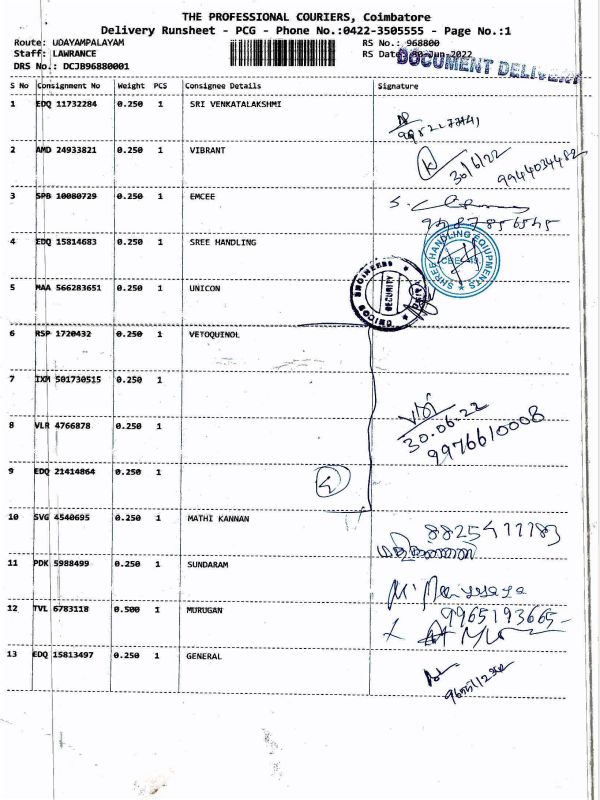 THE PROFESSIONAL COURIERS, Coimbatore
Delivery Runsheet - PCG - Phone No.:0422-3505555 - Page No.:1
Route: UDAYAMPALAYAM RS No.: 968800
Staff: LAWRANCE RS Date: 30-Jun-2022
DOCUMENT DELIVERY
DRS No.: DCJB96880001
S No Consignment No Weight PCS Consignee Details Signature
1 EDQ 11732284 0.250 1 SRI VENKATALAKSHMI
2 AMD 24933821 0.250 1 VIBRANT
K 30/6/22 9944034482
3 SPB 10080729 0.250 1 EMCEE
4 EDQ 15814683 0.250 1 SREE HANDLING
SHREE HANDLING EQUIPMENTS
CBE
5 MAA 566283651 0.250 1 UNICON
ENGINEERS
SECURITY
6 RSP 1720432 0.250 1 VETOQUINOL
7 IXM 501730515 0.250 1
30.06.22
8 VLR 4766878 0.250 1
9976610008
9 EDQ 21414864 0.250 1
10 SVG 4540695 0.250 1 MATHI KANNAN
11 PDK 5988499 0.250 1 SUNDARAM
12 TVL 6783118 0.500 1 MURUGAN
9965193665
13 EDQ 15813497 0.250 1 GENERAL